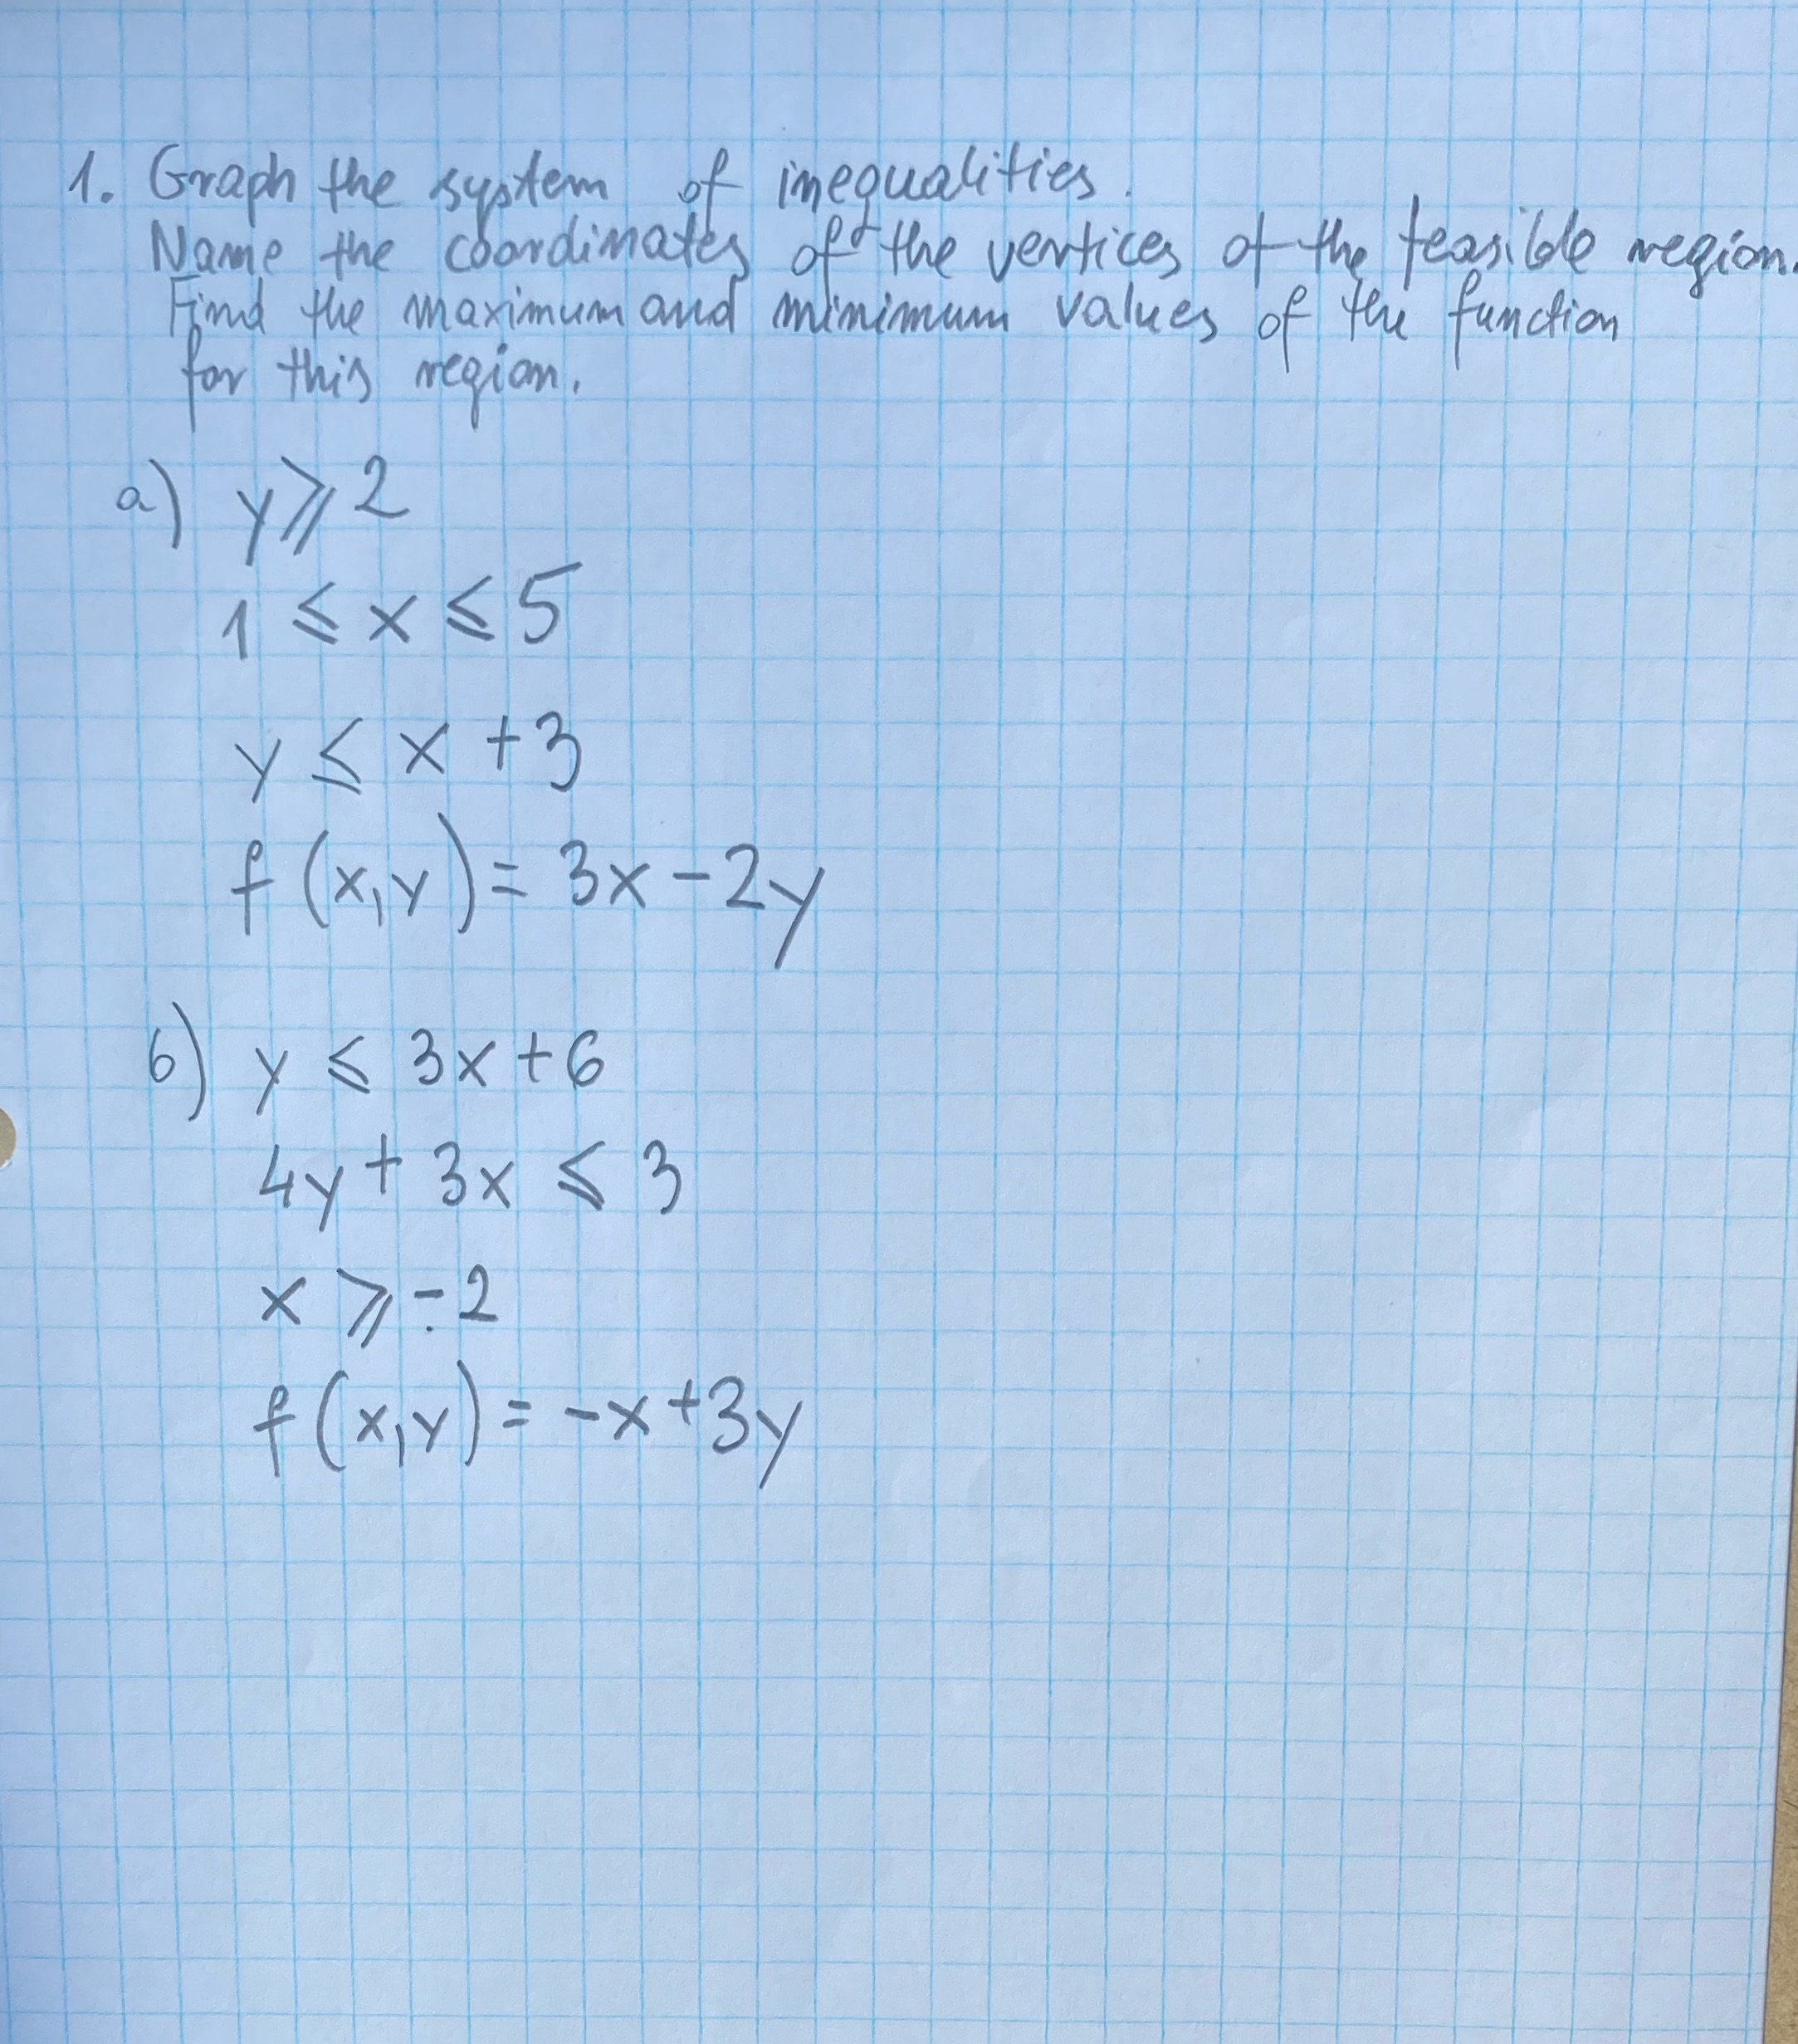 1. Graph the system of inequalities.
Name the coordinates of the vertices of the feasible region.
Find the maximum and minimum values of the function
for this region.
a) y ⩾ 2
1 ⩽ x ⩽ 5
y ⩽ x + 3
f (x,y) = 3x - 2y
б) y ⩽ 3x + 6
4y + 3x ⩽ 3
x ⩾ -2
f (x,y) = -x + 3y